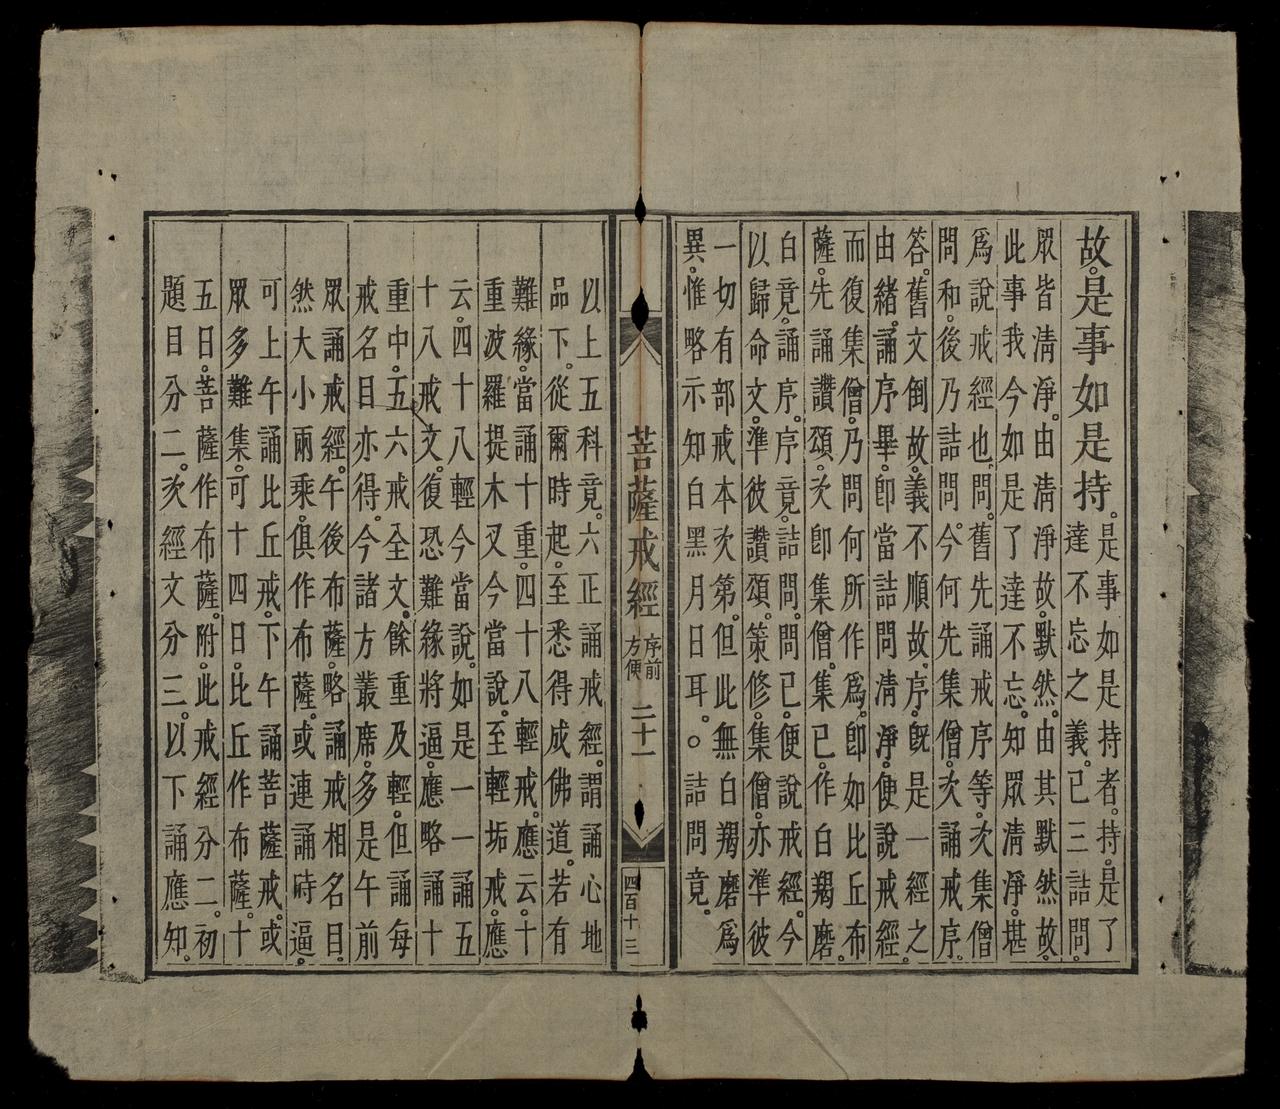 故。是事如是持。是事如是持者。持。是了
達不忘之義。已三詰問。
眾皆清淨。由清淨故。默然。由其默然故。
此事我今如是了達不忘。知眾清淨。堪
爲說戒經也。問。舊先誦戒序等。次集僧
問和。後乃詰問。今何先集僧。次誦戒序。
答。舊文倒故。義不順故。序旣是一經之
由緒。誦序畢。卽當詰問清淨。便說戒經。
而復集僧。乃問何所作爲。卽如比丘布
薩。先誦讚頌。次卽集僧。集已。作白羯磨。
白竟。誦序。序竟。詰問。問已。便說戒經。今
以歸命文。準彼讚頌。策修。集僧。亦準彼
一切有部戒本次第。但此無白羯磨爲
異。惟略示知白黑月日耳。○詰問竟。
菩薩戒經 序前方便 二十一 四百十三
以上五科竟。六正誦戒經。謂誦心地
品下。從爾時起。至悉得成佛道。若有
難緣。當誦十重。四十八輕戒。應云。十
重波羅提木叉今當說。至輕垢戒。應
云。四十八輕今當說。如是一一誦五
十八戒文。復恐難緣將逼。應略誦十
重中。五六戒全文。餘重及輕。但誦每
戒名目亦得。今諸方叢席。多是午前
眾誦戒經。午後布薩。略誦戒相名目。
然大小兩乘。俱作布薩。或連誦時逼。
可上午誦比丘戒。下午誦菩薩戒。或
眾多難集。可十四日。比丘作布薩。十
五日。菩薩作布薩。附。此戒經分二。初
題目分二。次經文分三。以下誦應知。